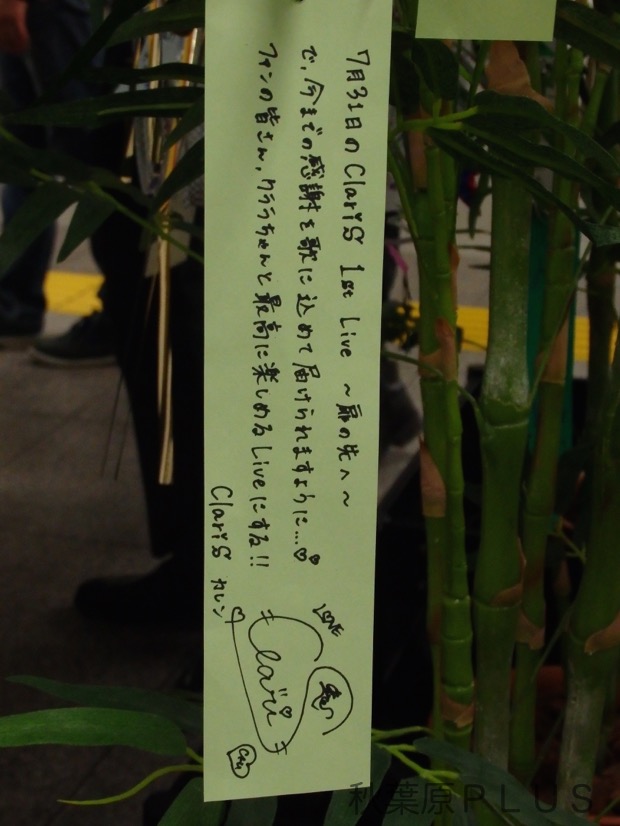 7月31日のClariS 1st Live ～扉の先へ～
で、今までの感謝を歌に込めて届けられますように…♡♡
ファンの皆さん、クララちゃんと最高に楽しめるLiveにする!!
ClariS カレン
LOVE
ClariS
秋葉原PLUS